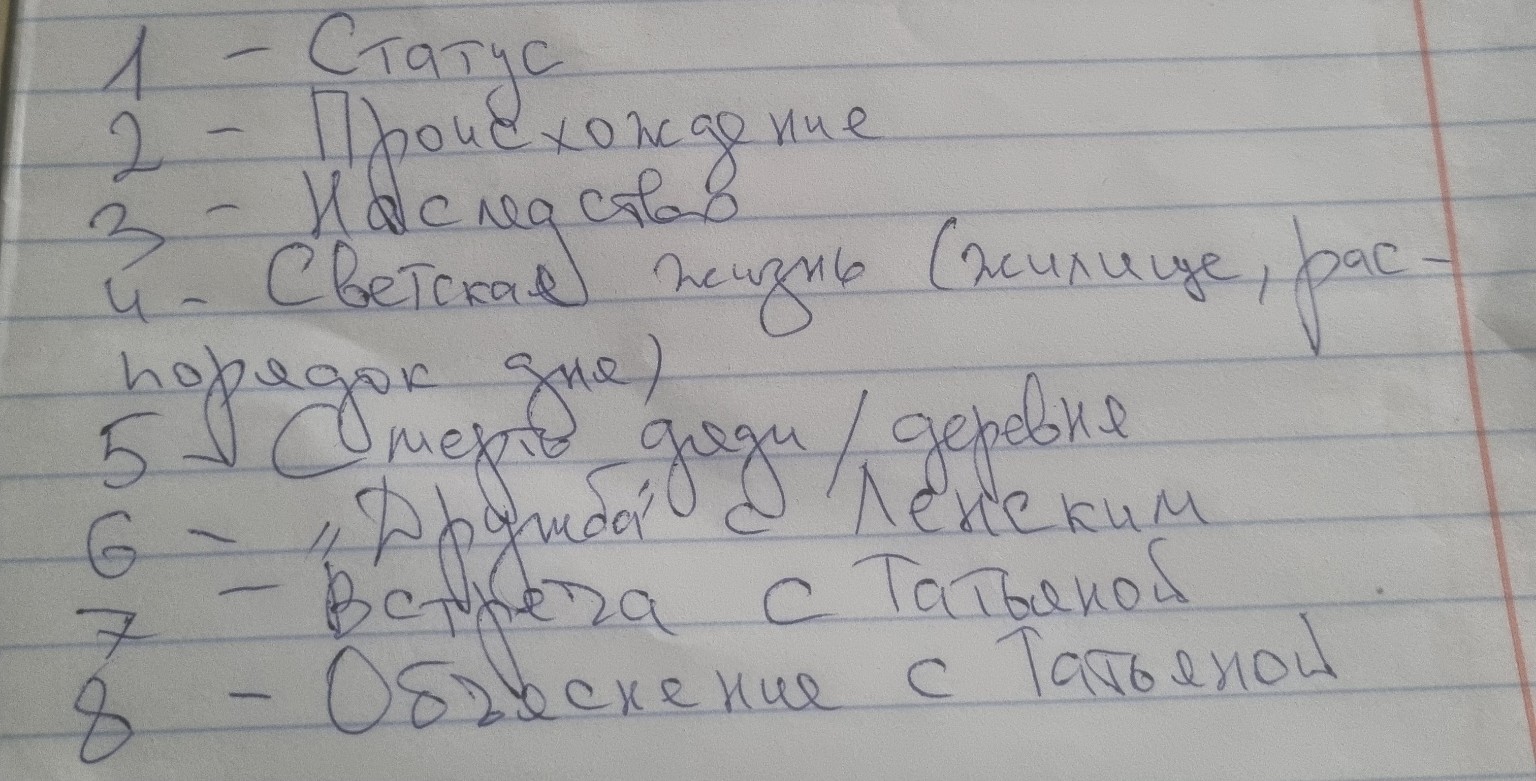 1 - Статус
2 - Происхождение
3 - Наследство
4 - Светская жизнь (жилище, рас-
порядок дня)
5 - Смерть дяди / деревня
6 - „Дружба" с Ленским
7 - Встреча с Татьяной
8 - Объяснение с Татьяной